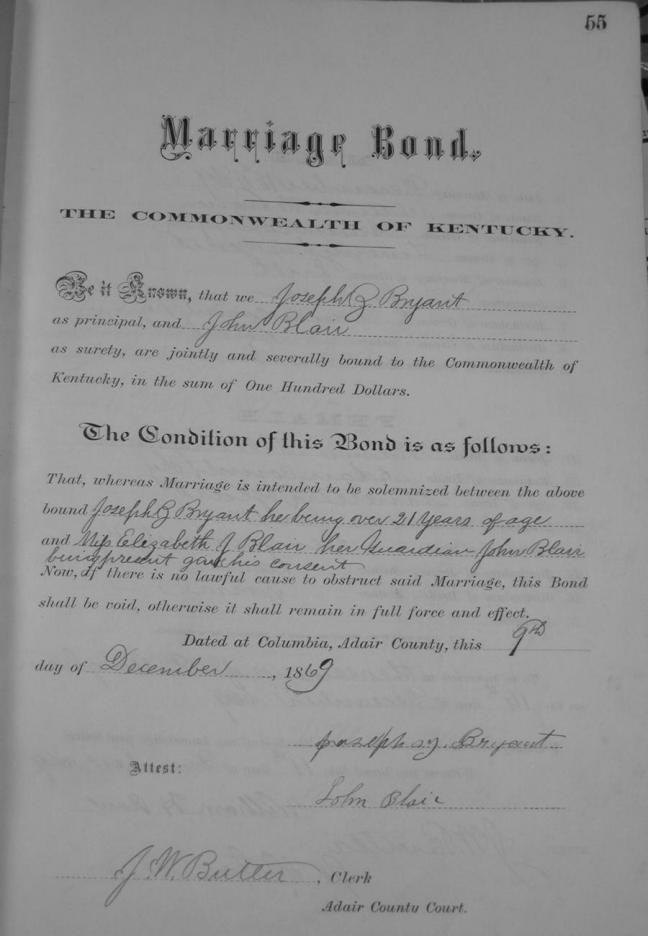 55
Marriage Bond.
THE COMMONWEALTH OF KENTUCKY.
Be it Known, that we Joseph Z Bryant
as principal, and John Blair
as surety, are jointly and severally bound to the Commonwealth of
Kentucky, in the sum of One Hundred Dollars.
The Condition of this Bond is as follows:
That, whereas Marriage is intended to be solemnized between the above
bound Joseph Z Bryant he being over 21 Years of age
and Miss Elizabeth J Blair her Guardian John Blair
being present gave his consent
Now, if there is no lawful cause to obstruct said Marriage, this Bond
shall be void, otherwise it shall remain in full force and effect.
Dated at Columbia, Adair County, this 9th
day of December, 1869
Joseph Z. Bryant
Attest:
John Blair
J. W. Butler, Clerk
Adair County Court.